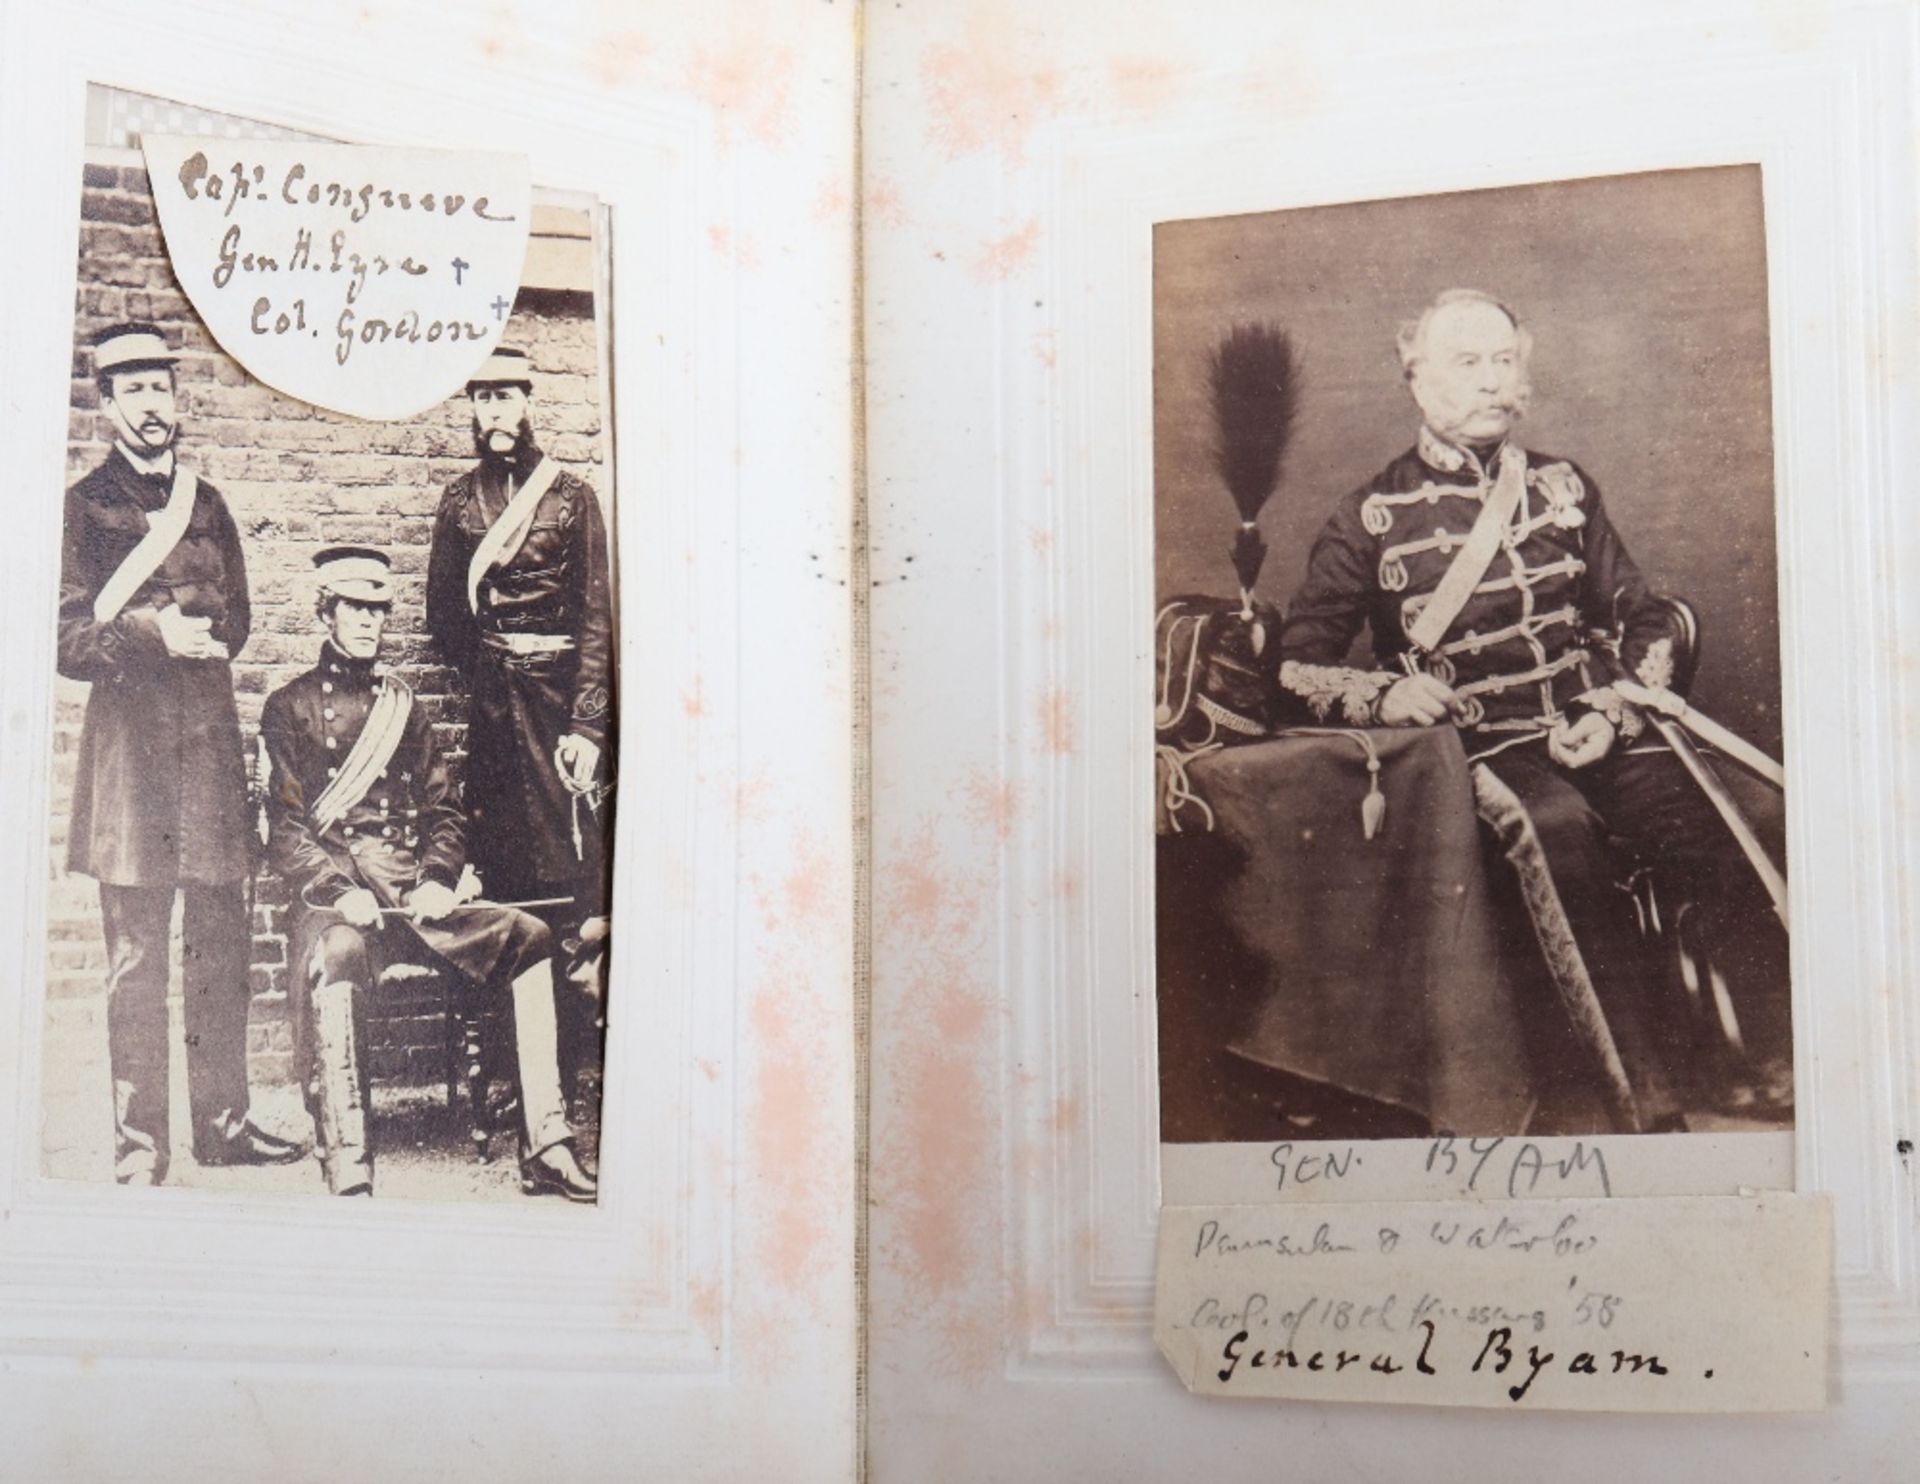 Capt. Congreve
Gen H. Eyre †
Col. Gordon †
GEN. BYAM
Peninsular & Waterloo
Col. of 18th Hussars '58
General Byam.